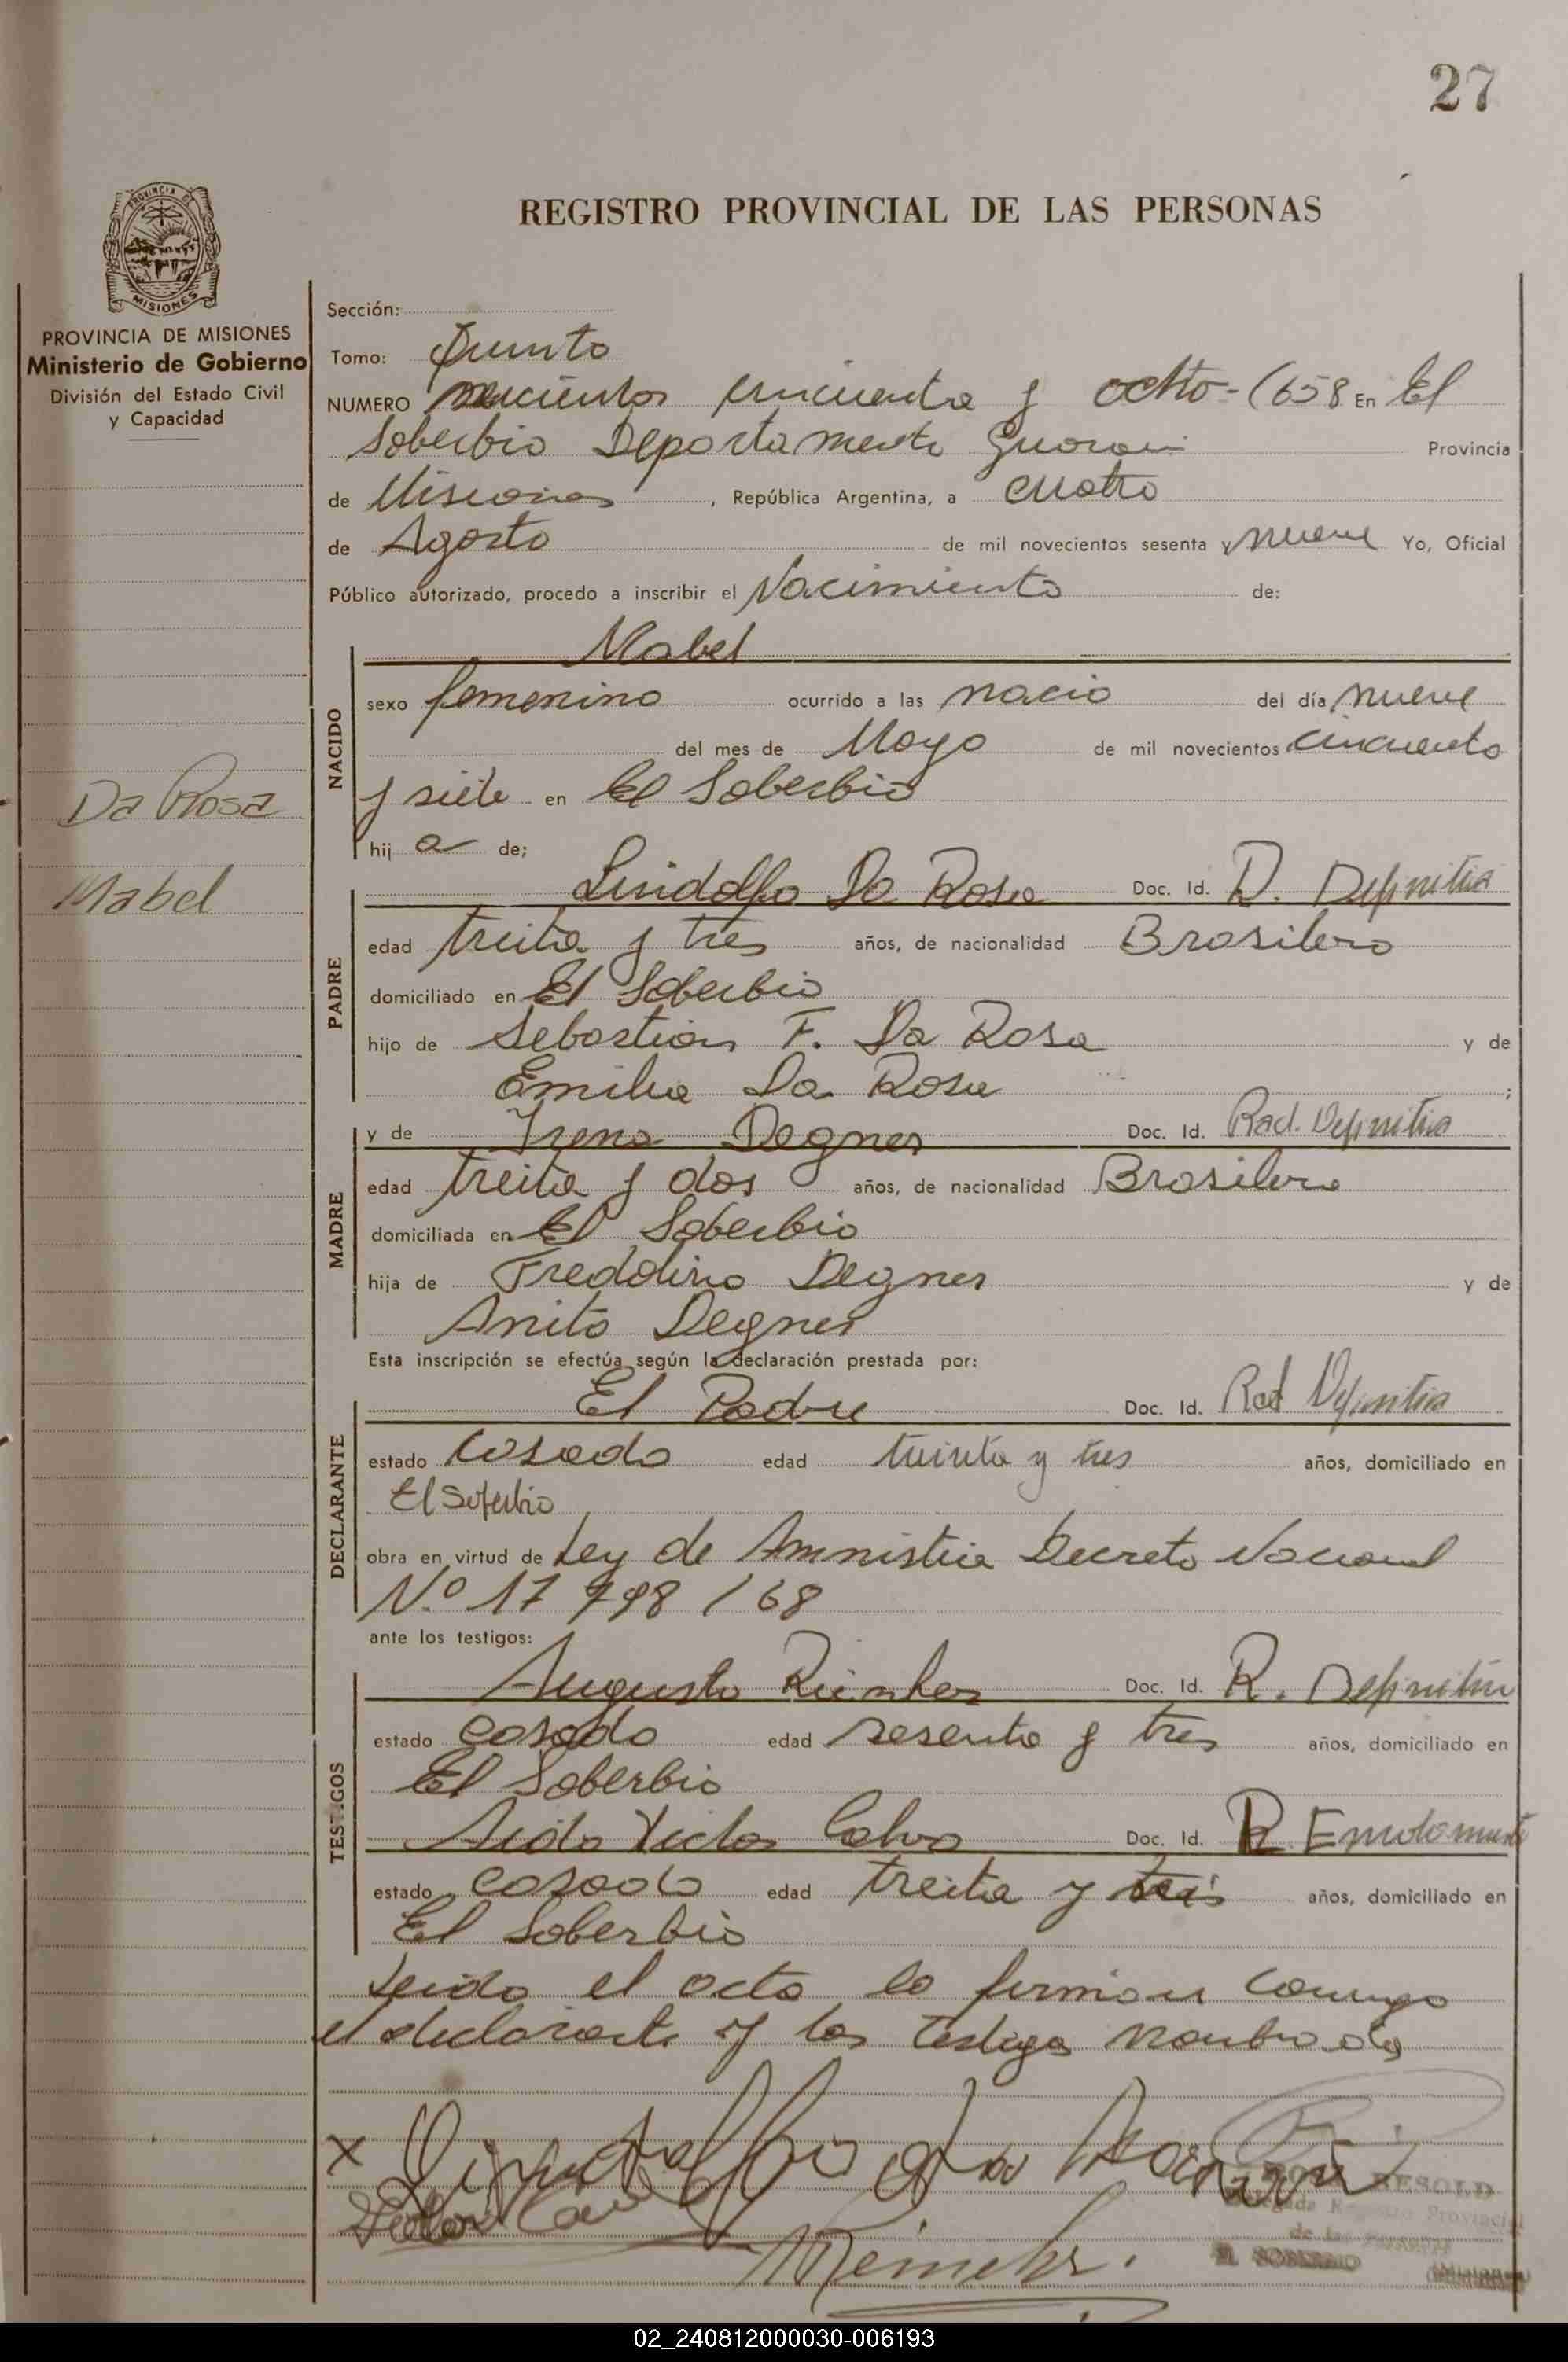 27
REGISTRO PROVINCIAL DE LAS PERSONAS
PROVINCIA DE MISIONES
Ministerio de Gobierno
División del Estado Civil
y Capacidad
Da Rosa
Mabel
Sección:
Tomo: Quinto
NUMERO seiscientos cincuenta y ochto-(658 En El
Soberbio Departamento Guarani Provincia
de Misiones, República Argentina, a cuatro
de Agosto de mil novecientos sesenta y nueve Yo, Oficial
Público autorizado, procedo a inscribir el Nacimiento de:
NACIDO
Mabel
sexo femenino ocurrido a las nacio del día nueve
del mes de Mayo de mil novecientos cincuenta
y siete en El Soberbio
hij a de;
PADRE
Lindolfo Da Rosa Doc. Id. R. Definitia
edad treita y tres años, de nacionalidad Brasilero
domiciliado en El Soberbio
hijo de Sebastian F. Da Rosa y de
Emilia Da Rosa ;
MADRE
y de Irena Degner Doc. Id. Rad. Definitia
edad treita y dos años, de nacionalidad Brasilera
domiciliada en El Soberbio
hija de Freddlino Degner y de
Anita Degner
Esta inscripción se efectúa según la declaración prestada por:
DECLARANTE
El Padre Doc. Id. Rad Definitia
estado casado edad treinta y tres años, domiciliado en
El Soberbio
obra en virtud de Ley de Amnistia Decreto Nacional
N.º 17 998 / 68
ante los testigos:
TESTIGOS
Augusto Doc. Id. R. Definitiv
estado casado edad sesenta y tres años, domiciliado en
El Soberbio
Victor Calvo Doc. Id. R.
estado casado edad treita y años, domiciliado en
El Soberbio
Leida el acta la firman conmigo
el declarante y los testigos nombrados
x Lindolfo da
RESOLD
Provincial
de las
EL SOBERBIO
02_240812000030-006193